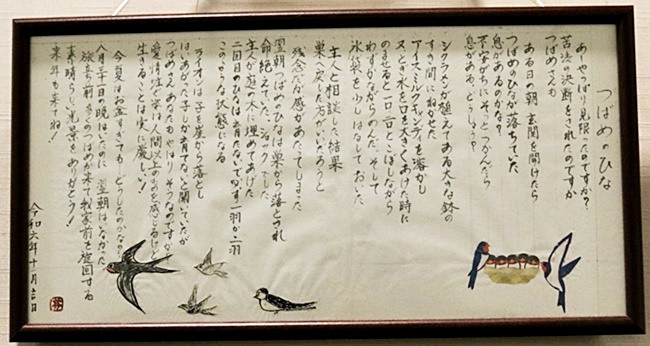 つばめのひな
あーやっぱり見損ったのですか?
苦渋の決断をされたのですか
つばめさんも
ある日の朝 玄関を開けたら
つばめのひなが落ちていた
息があるのかな?
不安がちにそっとつかんだら
息がある、どうしょう?
シクラメンが植えてある大きな鉢の
すき間にねかせた
アイス、ミルクキャンディを溶かし
又とき水を口を大きくあけた時に
のませると一口一口とこぼしながら
わずかながらのんだ そして
氷袋を少しはなしておいた
主人と相談した結果
巣へ戻した方がいいだろうと
残念だが感があたってしまった
翌朝つばめのひなは巣から落とされ
命絶えていた、ショックでした
主人が庭の木に埋めてあげた
二回目のひなは生育たないですが一羽か二羽
このような状態になる
ライオンは子を崖から落とし
はいあがった子しか育てないと聞いていたが
つばめさんあなたもやはりそうなのですか
愛情注ぐ姿は人間以上のものを感じるけど
生きることは実に厳しい!
今夏はお盆すぎても どうしたのかなの
八月二十日の晩はいたのに 翌朝はいなかった
旅立つ前 多くのつばめが来て我家前を旋回する
素晴らしい光景をありがとう!
来年も来てね!
令和六年十一月吉日